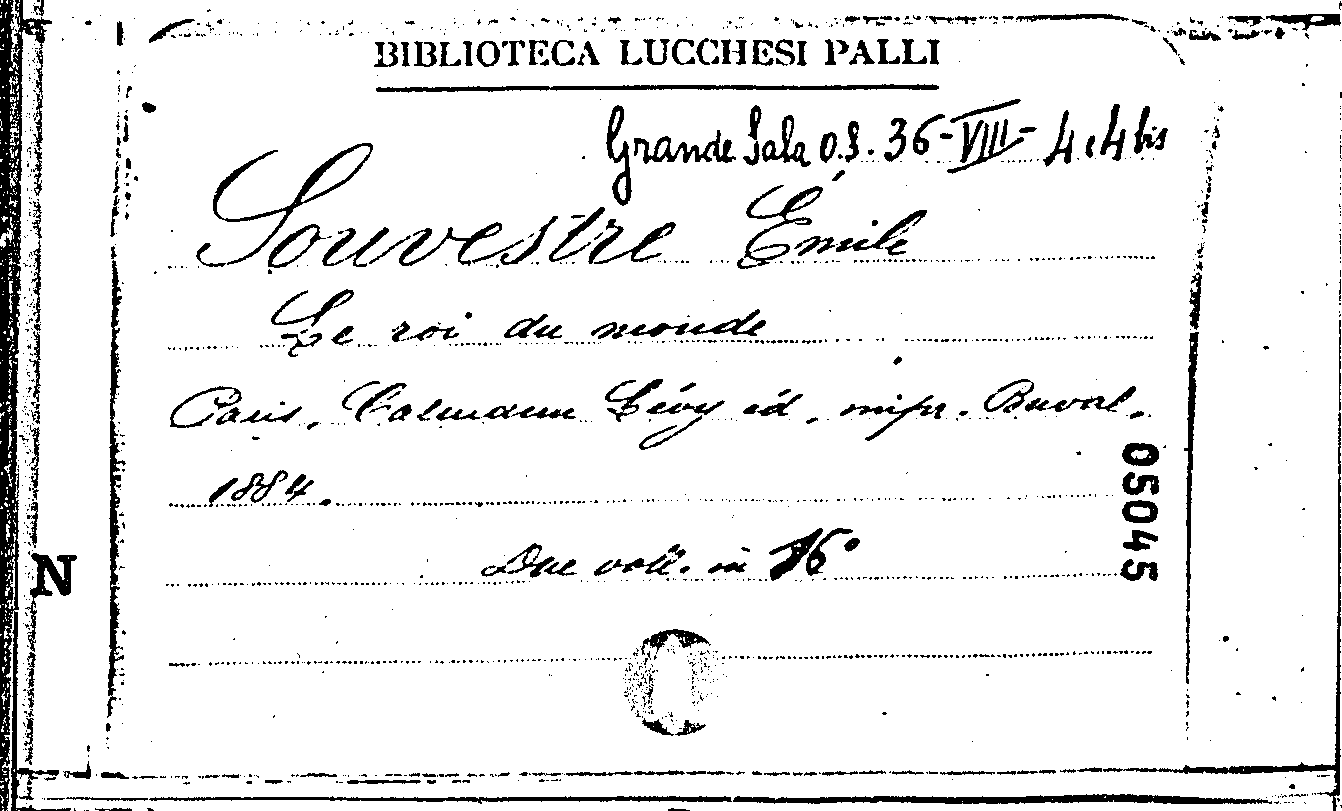 BIBLIOTECA LUCCHESI PALLI
Grande Sala O.S. 36-VIII-4 e 4 bis
Souvestre Émile
Le roi du monde
Paris, Calmann Lévy éd, impr. Duval,
1884.
Due voll. in 16°
05045
N